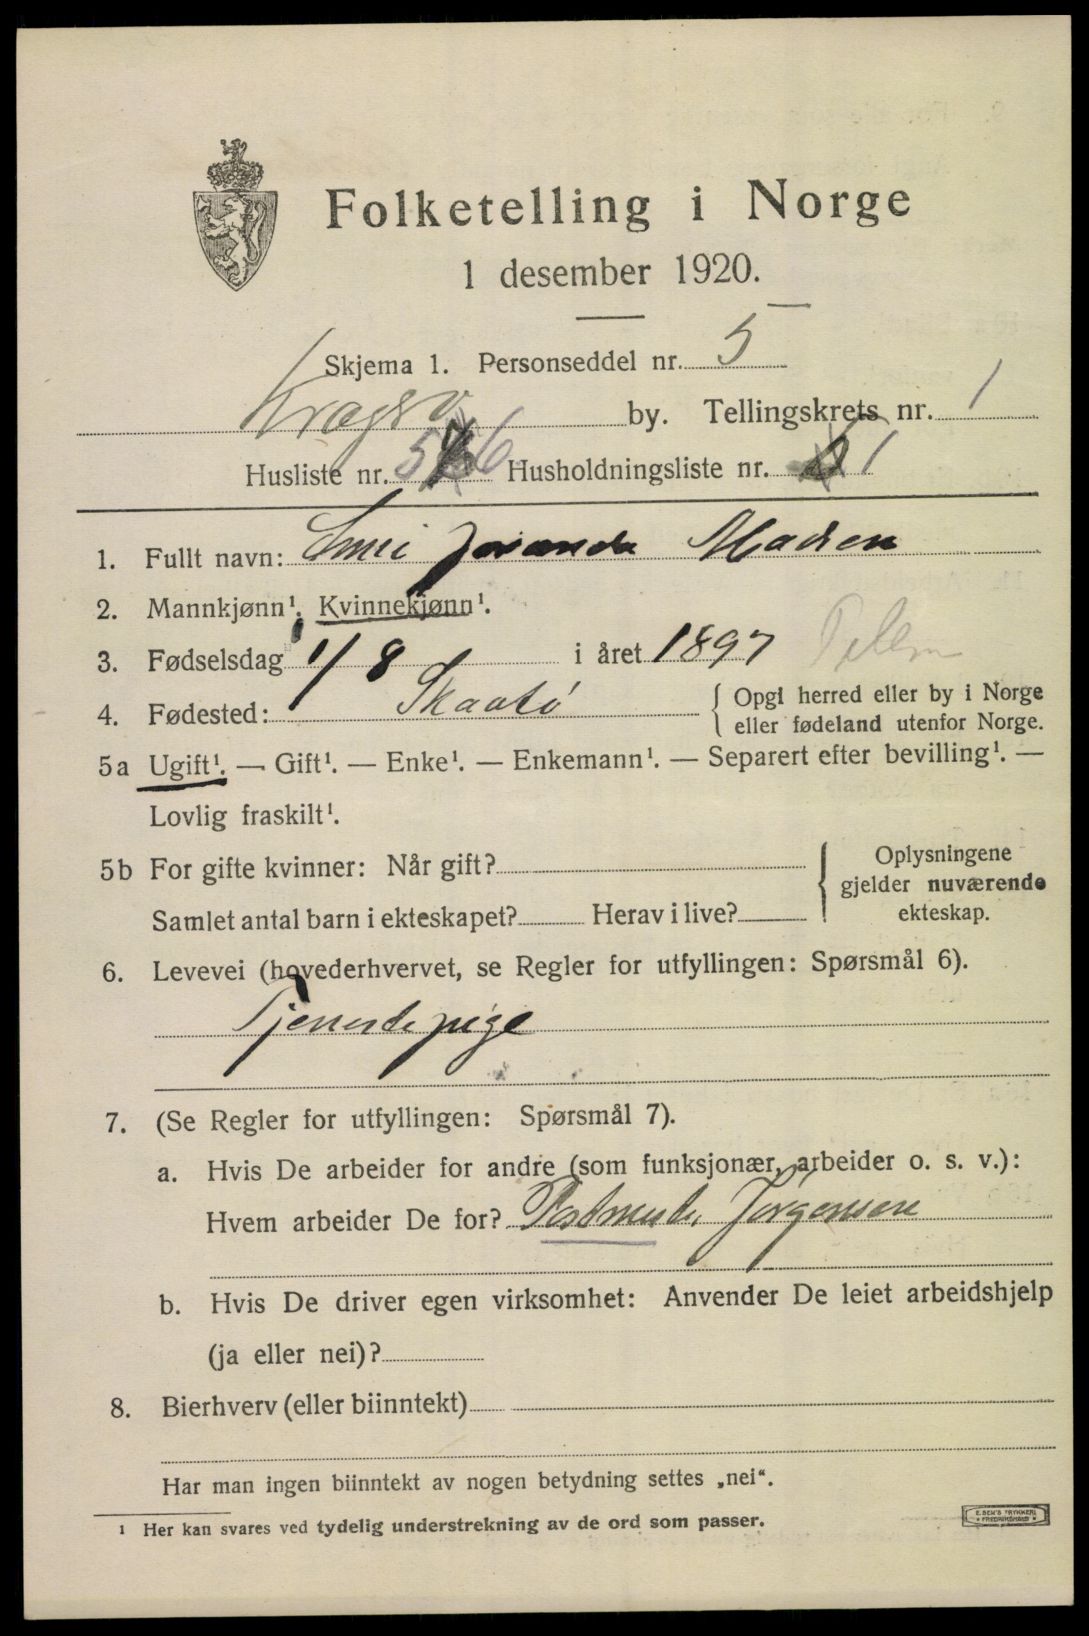 Folketelling i Norge
1 desember 1920.
Skjema 1. Personseddel nr. 5
Kragerø by. Tellingskrets nr. 1
Husliste nr. 56 Husholdningsliste nr. 1
1. Fullt navn: Madsen
2. Mannkjønn¹. Kvinnekjønn¹.
3. Fødselsdag 1/8 i året 1897 Telem
4. Fødested: Skaatø { Opgi herred eller by i Norge
eller fødeland utenfor Norge.
5a Ugift¹. — Gift¹. — Enke¹. — Enkemann¹. — Separert efter bevilling¹. —
Lovlig fraskilt¹.
5b For gifte kvinner: Når gift? { Oplysningene
gjelder nuværende
Samlet antal barn i ekteskapet? Herav i live? ekteskap.
6. Levevei (hovederhvervet, se Regler for utfyllingen: Spørsmål 6).
Tjenestepige
7. (Se Regler for utfyllingen: Spørsmål 7).
a. Hvis De arbeider for andre (som funksjonær, arbeider o. s. v.):
Hvem arbeider De for? Postmester Jørgensen
b. Hvis De driver egen virksomhet: Anvender De leiet arbeidshjelp
(ja eller nei)?
8. Bierhverv (eller biinntekt)
Har man ingen biinntekt av nogen betydning settes „nei“.
¹ Her kan svares ved tydelig understrekning av de ord som passer.
E. SEM'S TRYKKERI
FREDRIKSHALD